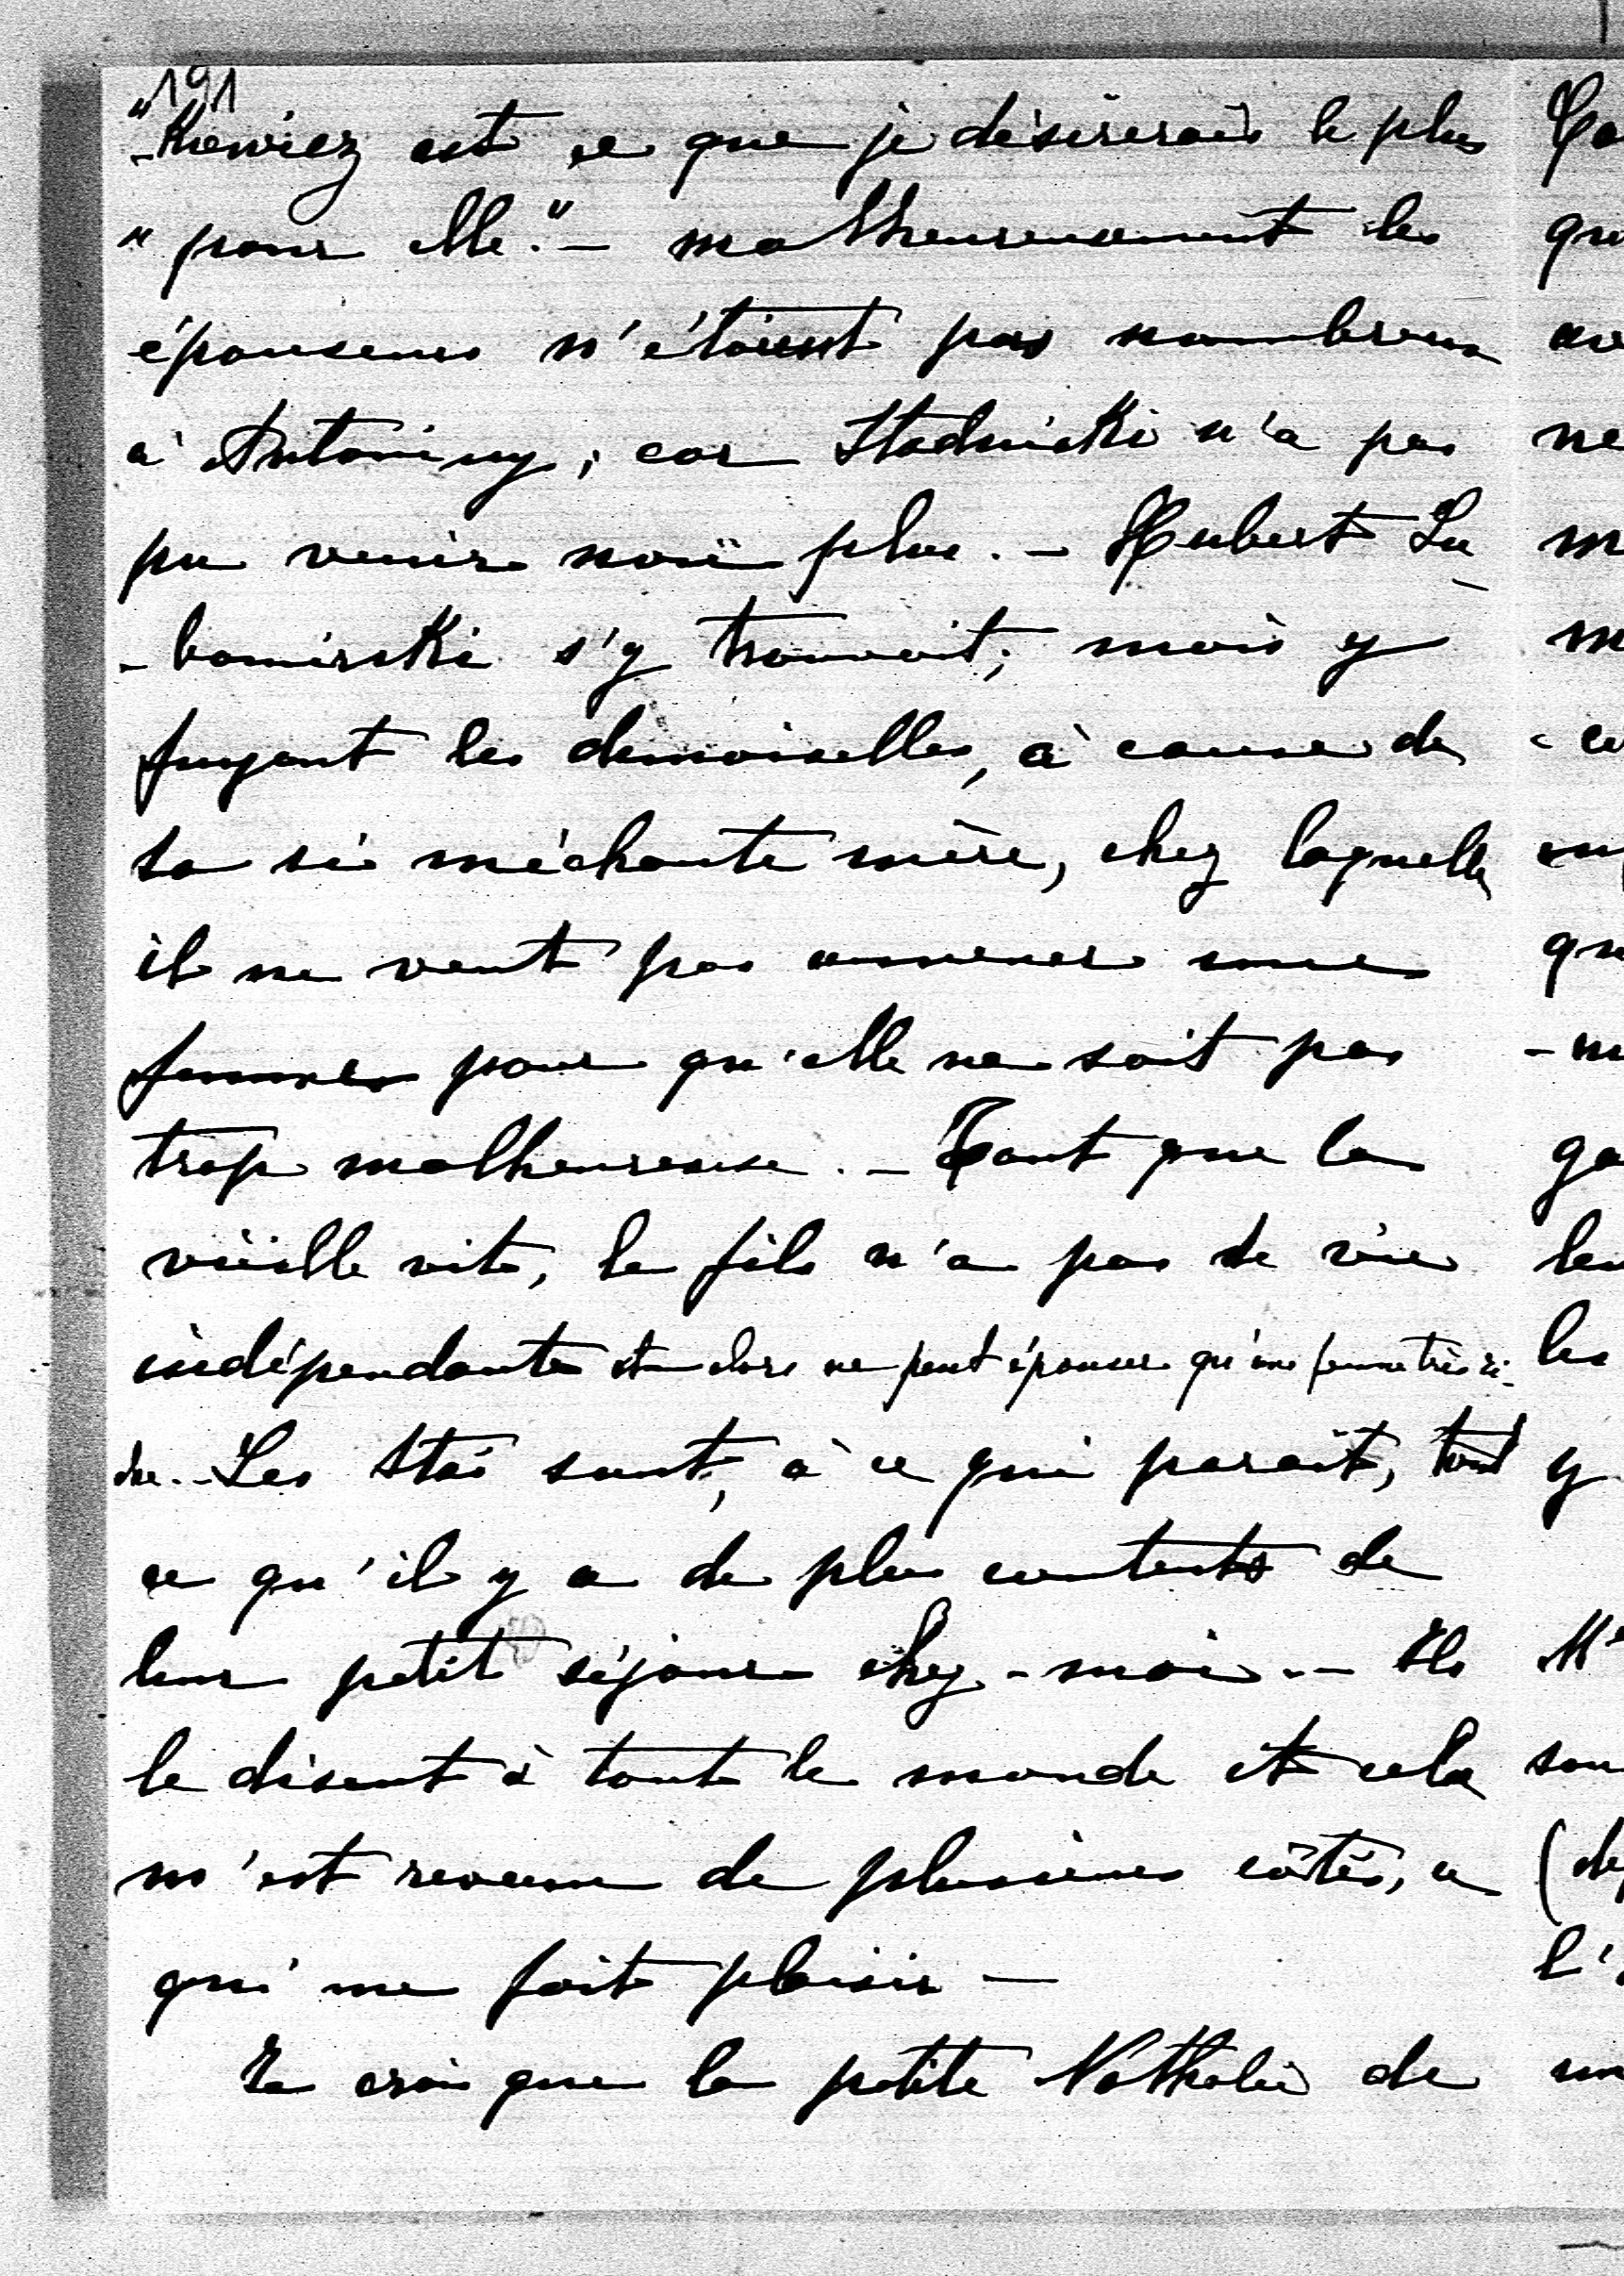 191
"-Kiewicz est ce que je désirerais le plus
" pour elle." - malheureusement les
épouseurs n'étaient pas nombreux
à Antoniny, car Stadnicki n'a pas
pu venir non plus. - Hubert Lu-
-bomirski s'y trouvait; mais y
fuyant les demoiselles, à cause de
sa si méchante mère, chez laquelle
il ne veut pas amener une
femme pour qu'elle ne soit pas
trop malheureuse. - Tant que la
vieille vit, le fils n'a pas de vie
indépendante et alors ne peut épouser qu'une femme très ri-
che. - Les Staś sont, à ce qui paraît, tout
ce qu'il y a de plus contents de
leur petit séjour chez-moi. - Ils
le disent à tout le monde et cela
m'est revenu de plusieurs côtés, ce
qui me fait plaisir -
Je crois que la petite Nathalie de